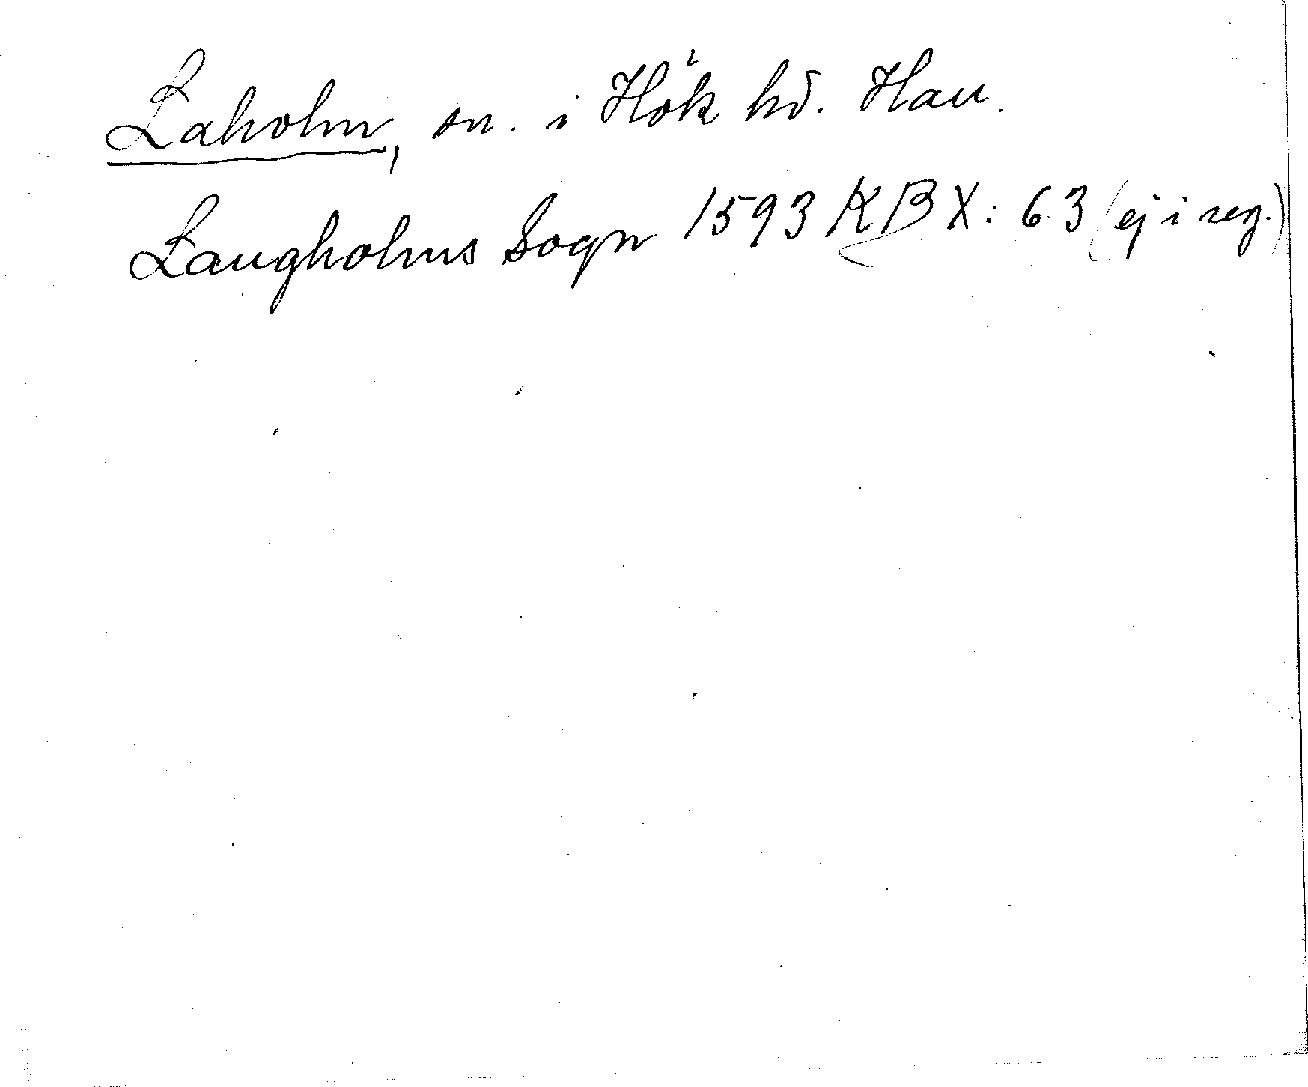 Laholm, sn. i Hök hd. Hall.
Laugholms Sogn 1593 KB X: 63 (ej i reg.)